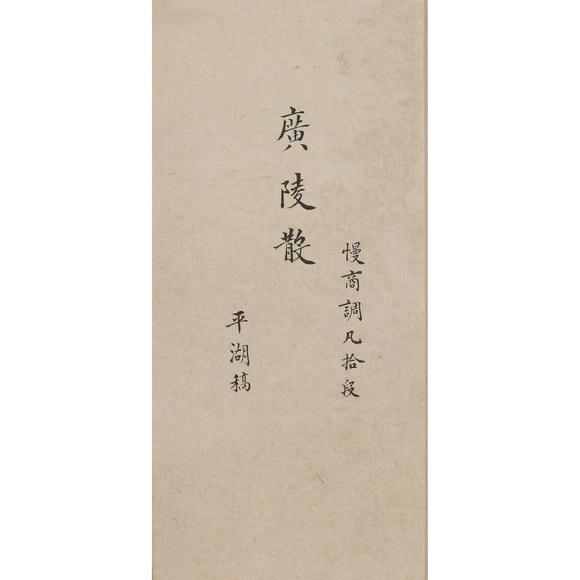 慢商調凡拾段
廣陵散
平湖稿